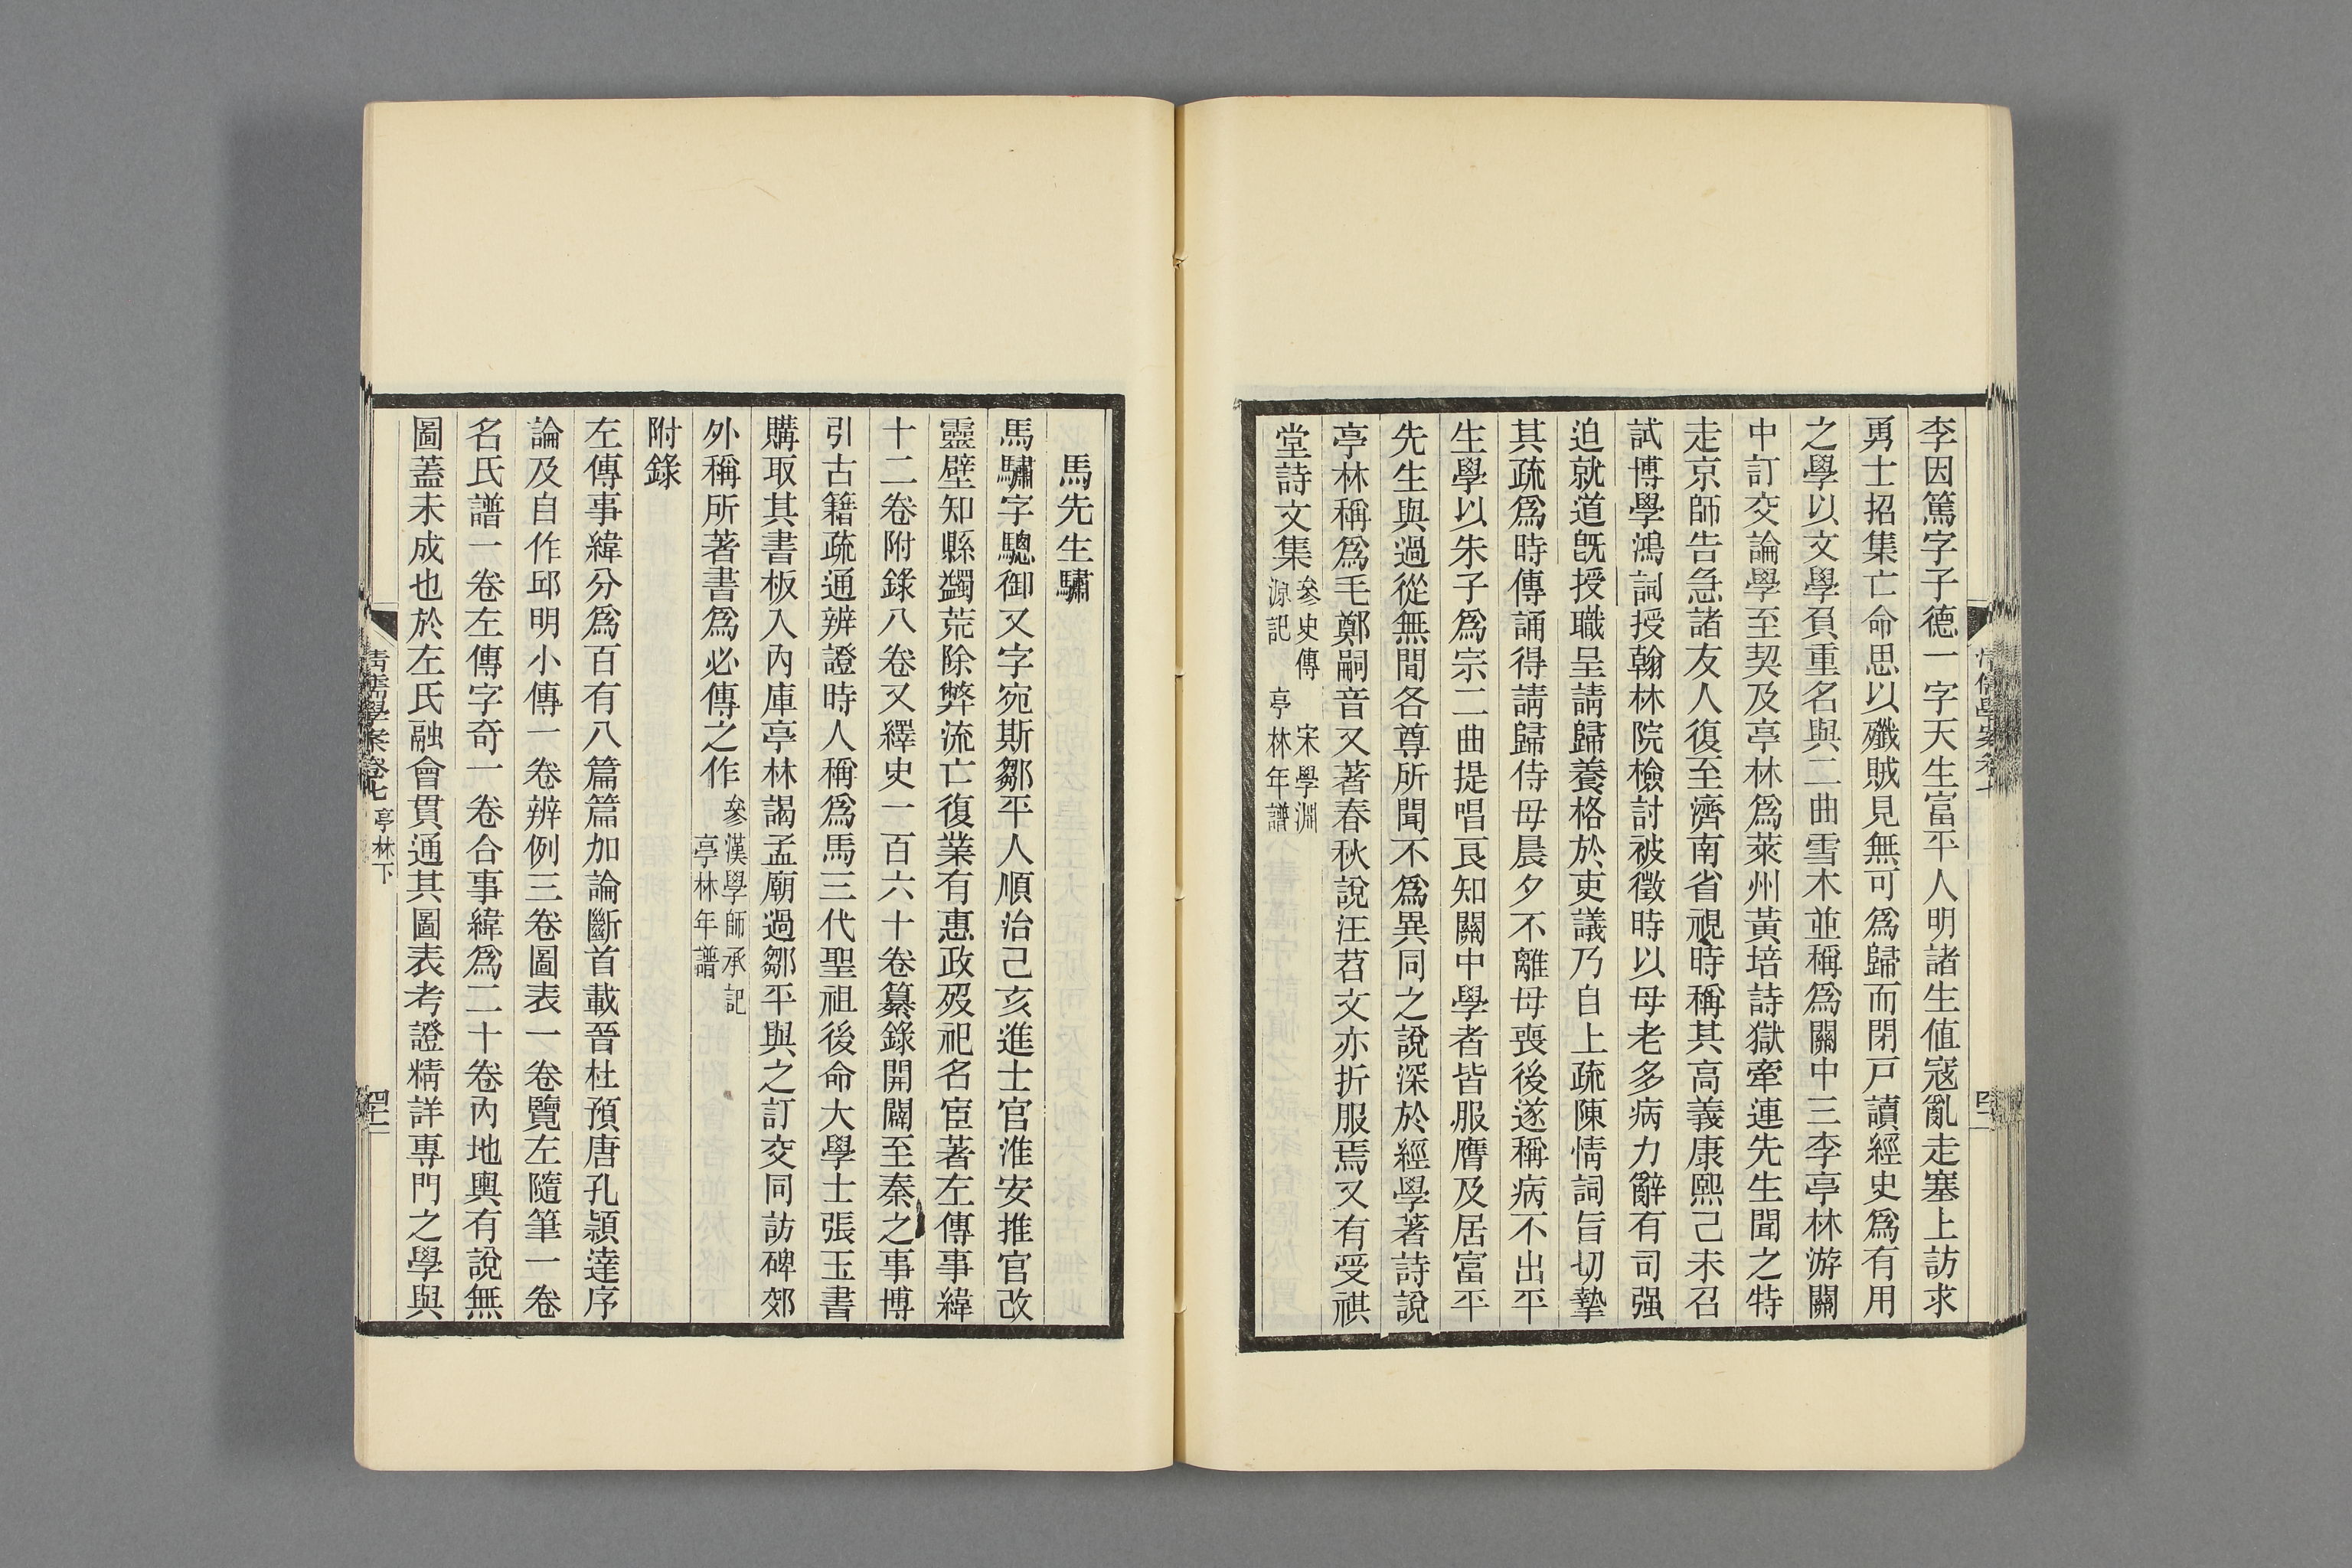 李因篤字子德一字天生富平人明諸生值寇亂走塞上訪求
勇士招集亡命思以殲賊見無可爲歸而閉戸讀經史爲有用
之學以文學負重名與二曲雪木並稱爲關中三李亭林游關
中訂交論學至契及亭林爲萊州黃培詩獄牽連先生聞之特
走京師告急諸友人復至濟南省視時稱其高義康熙己未召
試博學鴻詞授翰林院檢討被徵時以母老多病力辭有司强
迫就道旣授職呈請歸養格於吏議乃自上疏陳情詞旨切摯
其疏爲時傳誦得請歸侍母晨夕不離母喪後遂稱病不出平
生學以朱子爲宗二曲提唱良知關中學者皆服膺及居富平
先生與過從無閒各尊所聞不爲異同之說深於經學著詩說
亭林稱爲毛鄭嗣音又著春秋說汪苕文亦折服焉又有受祺
堂詩文集參史傳 宋學淵
源記 亭林年譜
馬先生驌
馬驌字驄御又字宛斯鄒平人順治己亥進士官淮安推官改
靈壁知縣蠲荒除弊流亡復業有惠政歿祀名宦著左傳事緯
十二卷附錄八卷又繹史一百六十卷纂錄開闢至秦之事博
引古籍疏通辨證時人稱爲馬三代聖祖後命大學士張玉書
購取其書板入內庫亭林謁孟廟過鄒平與之訂交同訪碑郊
外稱所著書爲必傳之作參漢學師承記
亭林年譜
附錄
左傳事緯分爲百有八篇篇加論斷首載晉杜預唐孔頴達序
論及自作邱明小傳一卷辨例三卷圖表一卷覽左隨筆一卷
名氏譜一卷左傳字奇一卷合事緯爲二十卷內地輿有說無
圖蓋未成也於左氏融會貫通其圖表考證精詳專門之學與
清儒學案卷七 亭林下